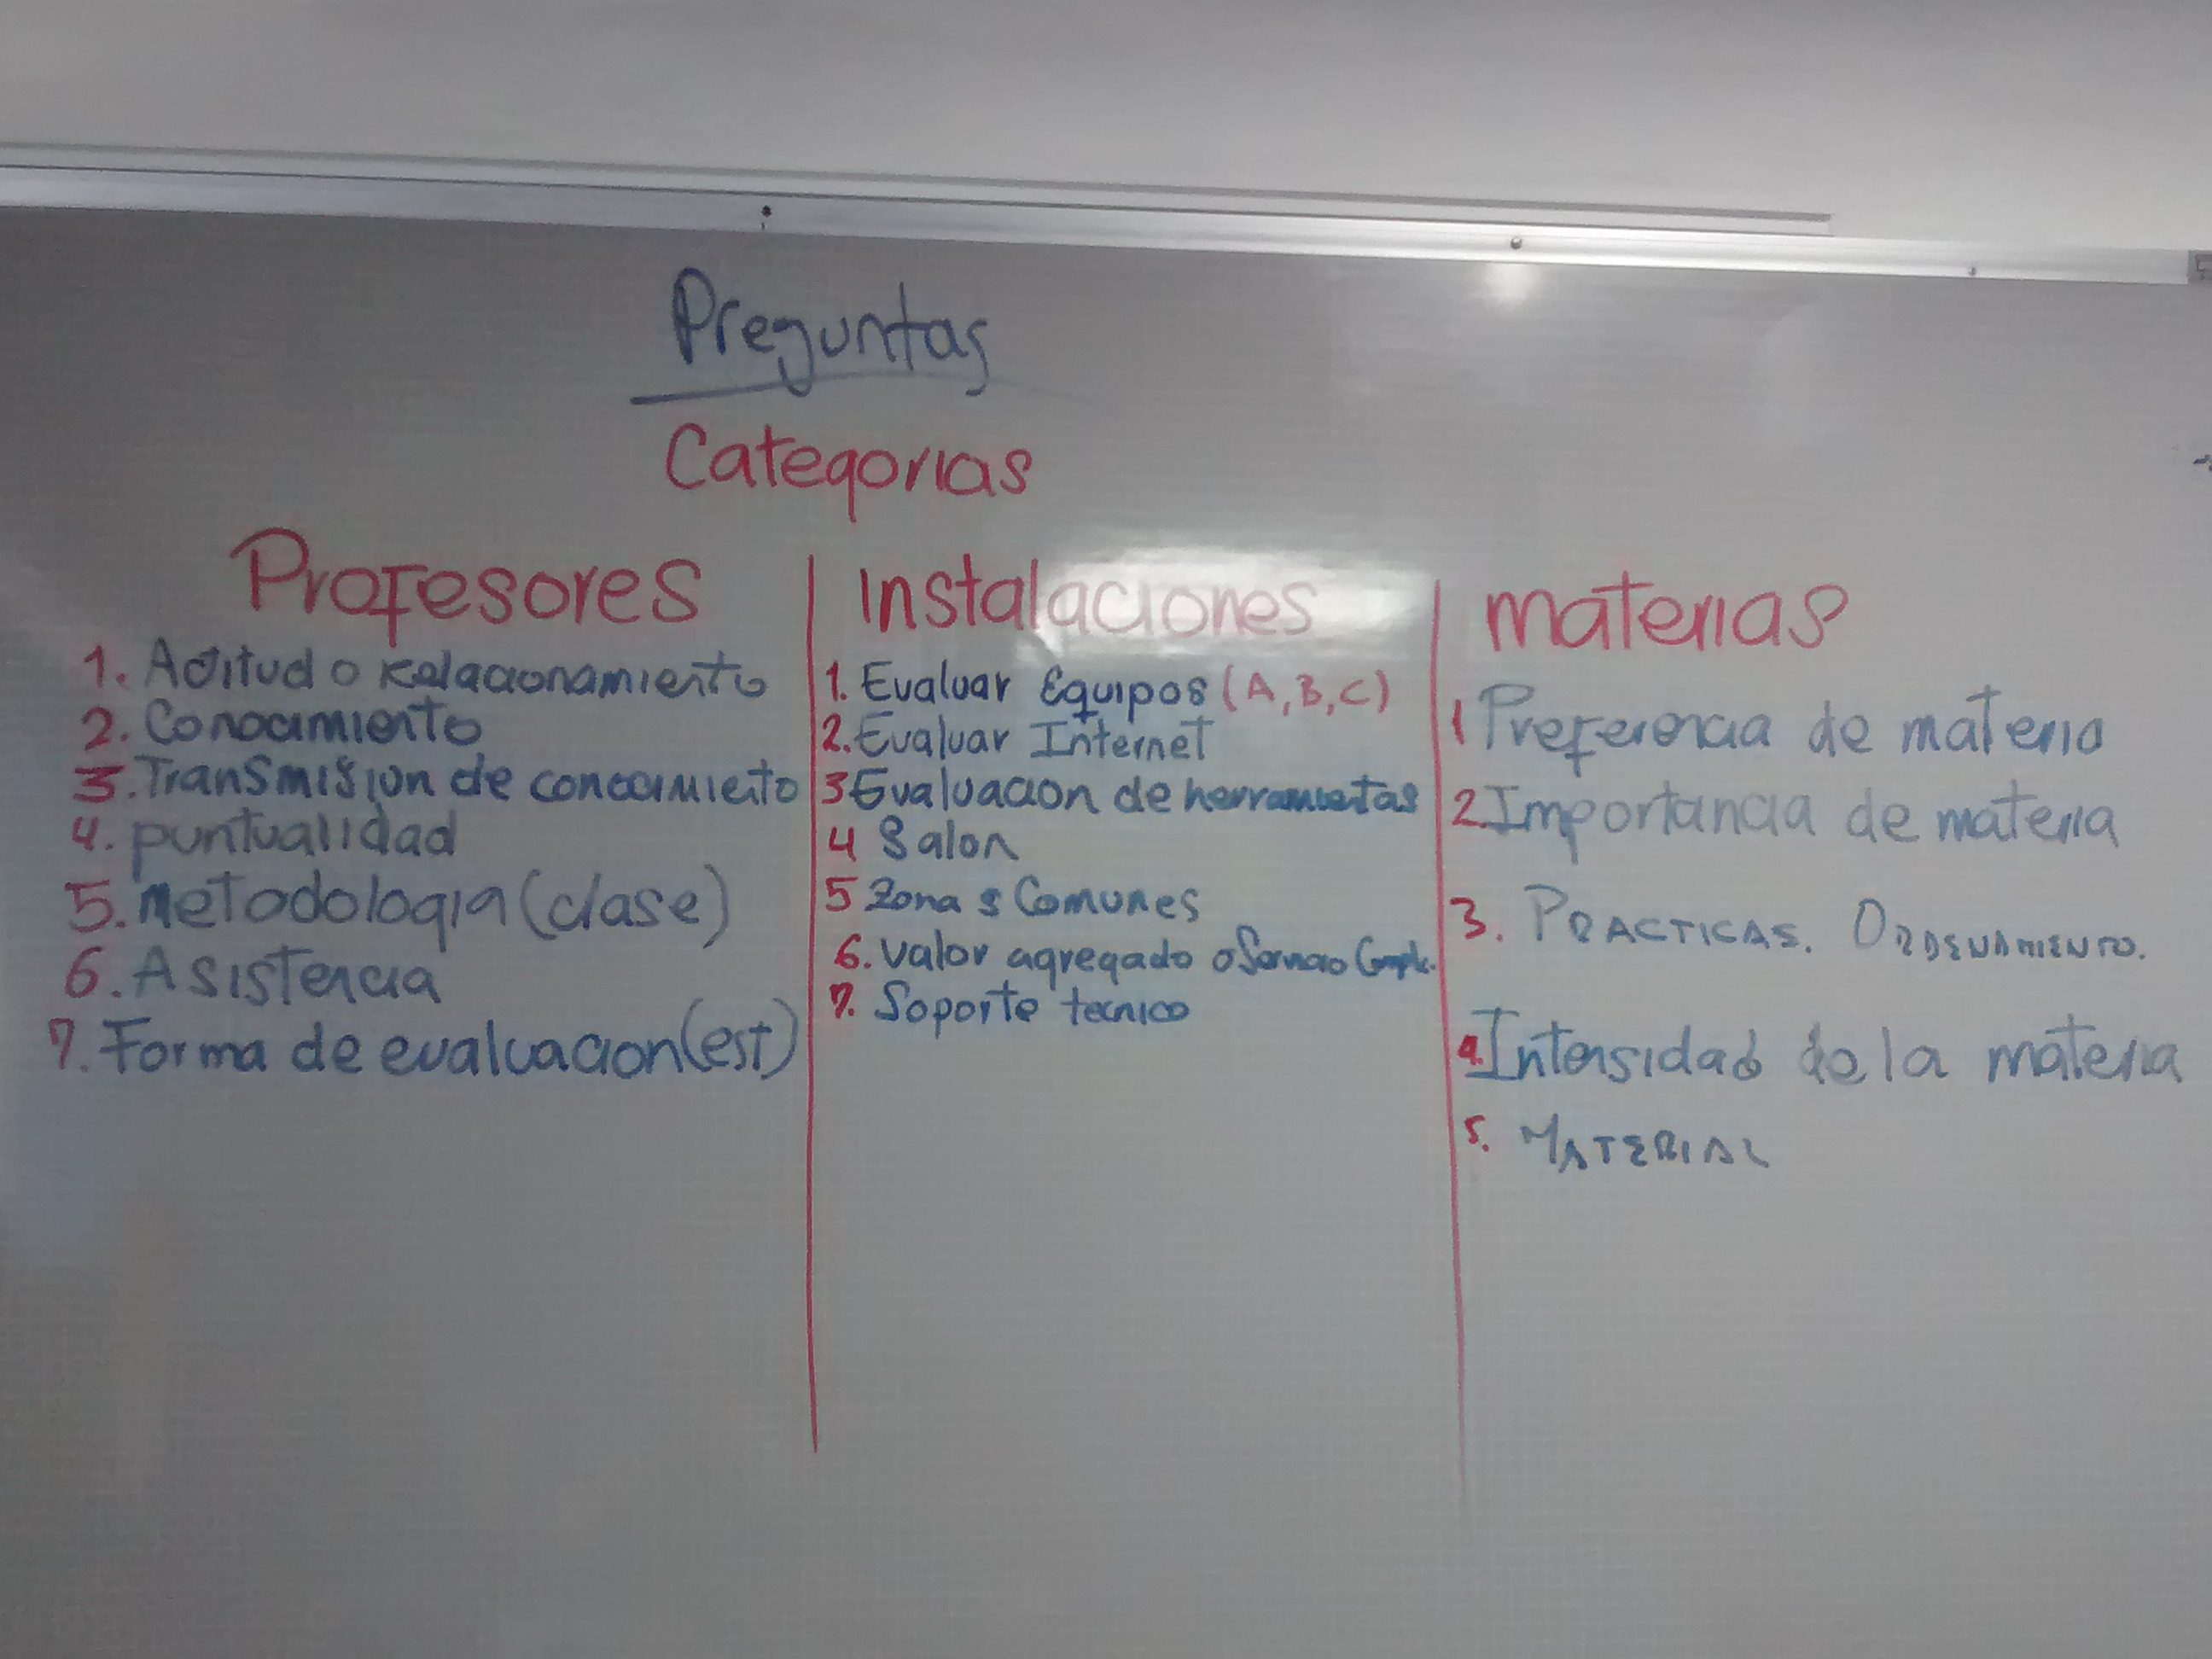 Preguntas
Categorias
Profesores
1. Actitud o Relacionamiento
2. Conocimiento
3. Transmision de conocimiento
4. puntualidad
5. metodologia (clase)
6. Asistencia
7. Forma de evaluacion (est)
Instalaciones
1. Evaluar Equipos (A, B, C)
2. Evaluar Internet
3 Evaluacion de herramientas
4 Salon
5 Zonas Comunes
6. valor agregado o Servicio Comple.
7. Soporte tecnico
materias
1 Preferencia de materia
2. Importancia de materia
3. PRACTICAS. ORDENAMIENTO.
4. Intensidad de la materia
5. MATERIAL